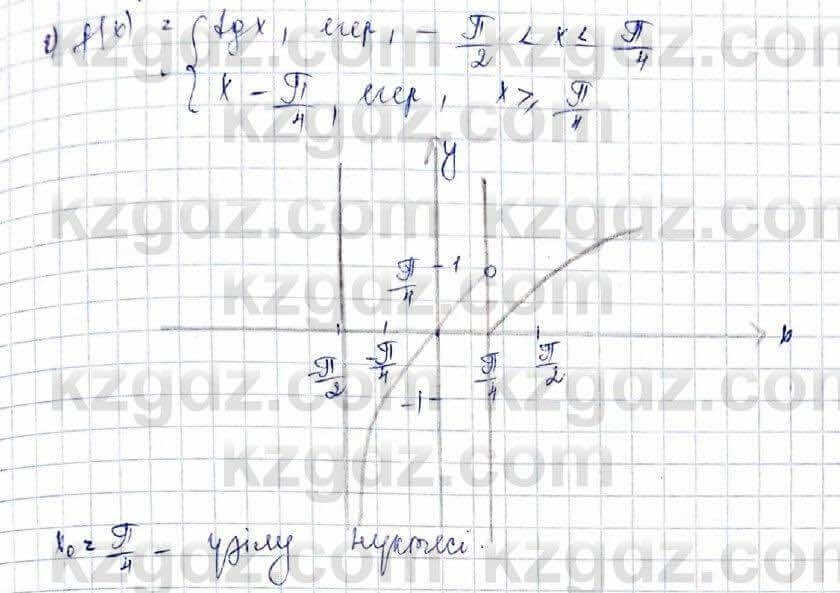 г) f(x) = { tg x, егер, - π/2 < x < π/4
x - π/4, егер, x ≥ π/4
y
π/4 1
x
-π/2 -π/4 π/4 π/2
-1
x₀ = π/4 - үзілу нүктесі.
kzgdz.com kzgdz.com
kzgdz.com
kzgdz.com kzgdz.com
kzgdz.com
kzgdz.com kzgdz.com
kzgdz.com
kzgdz.com kzgdz.com